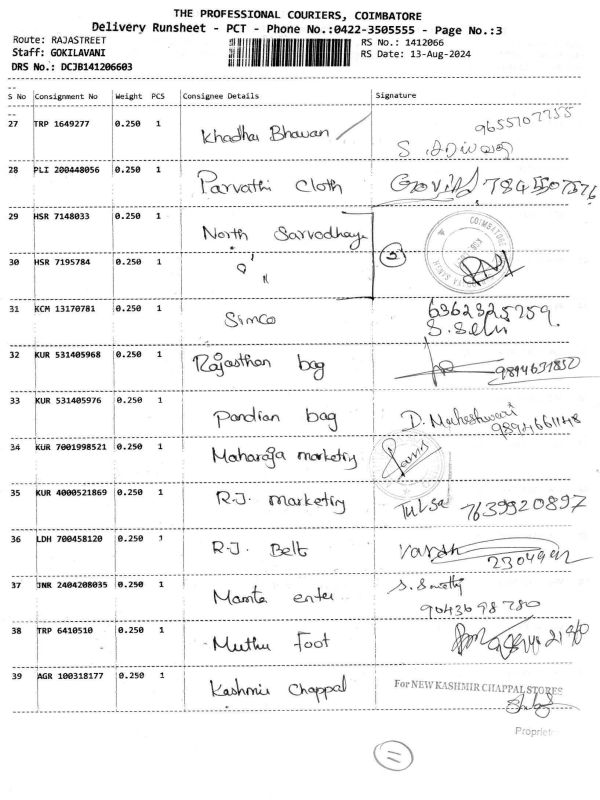 THE PROFESSIONAL COURIERS, COIMBATORE
Delivery Runsheet - PCT - Phone No.:0422-3505555 - Page No.:3
Route: RAJASTREET
RS No.: 1412066
Staff: GOKILAVANI
RS Date: 13-Aug-2024
DRS No.: DCJB141206603
S No Consignment No Weight PCS Consignee Details Signature
27 TRP 1649277 0.250 1 Khadhai Bhavan
28 PLI 200448056 0.250 1 Parvathi cloth
29 HSR 7148033 0.250 1 North Sarvodhaya
COIMBATORE
30 HSR 7195784 0.250 1 " "
31 KCM 13170781 0.250 1 Simco 6362325259
32 KUR 531405968 0.250 1 Rajasthan bag
33 KUR 531405976 0.250 1 Pandian bag D. Maheshwari
34 KUR 7001998521 0.250 1 Maharaja marketing
35 KUR 4000521869 0.250 1 R.J. marketing Tulsa 7639920897
36 LDH 700458120 0.250 1 R.J. Belt
37 JNR 2404208035 0.250 1 Mamta enter
9043698780
38 TRP 6410510 0.250 1 Muthu Foot
39 AGR 100318177 0.250 1 Kashmir Chappal For NEW KASHMIR CHAPPAL STORES
Propriet